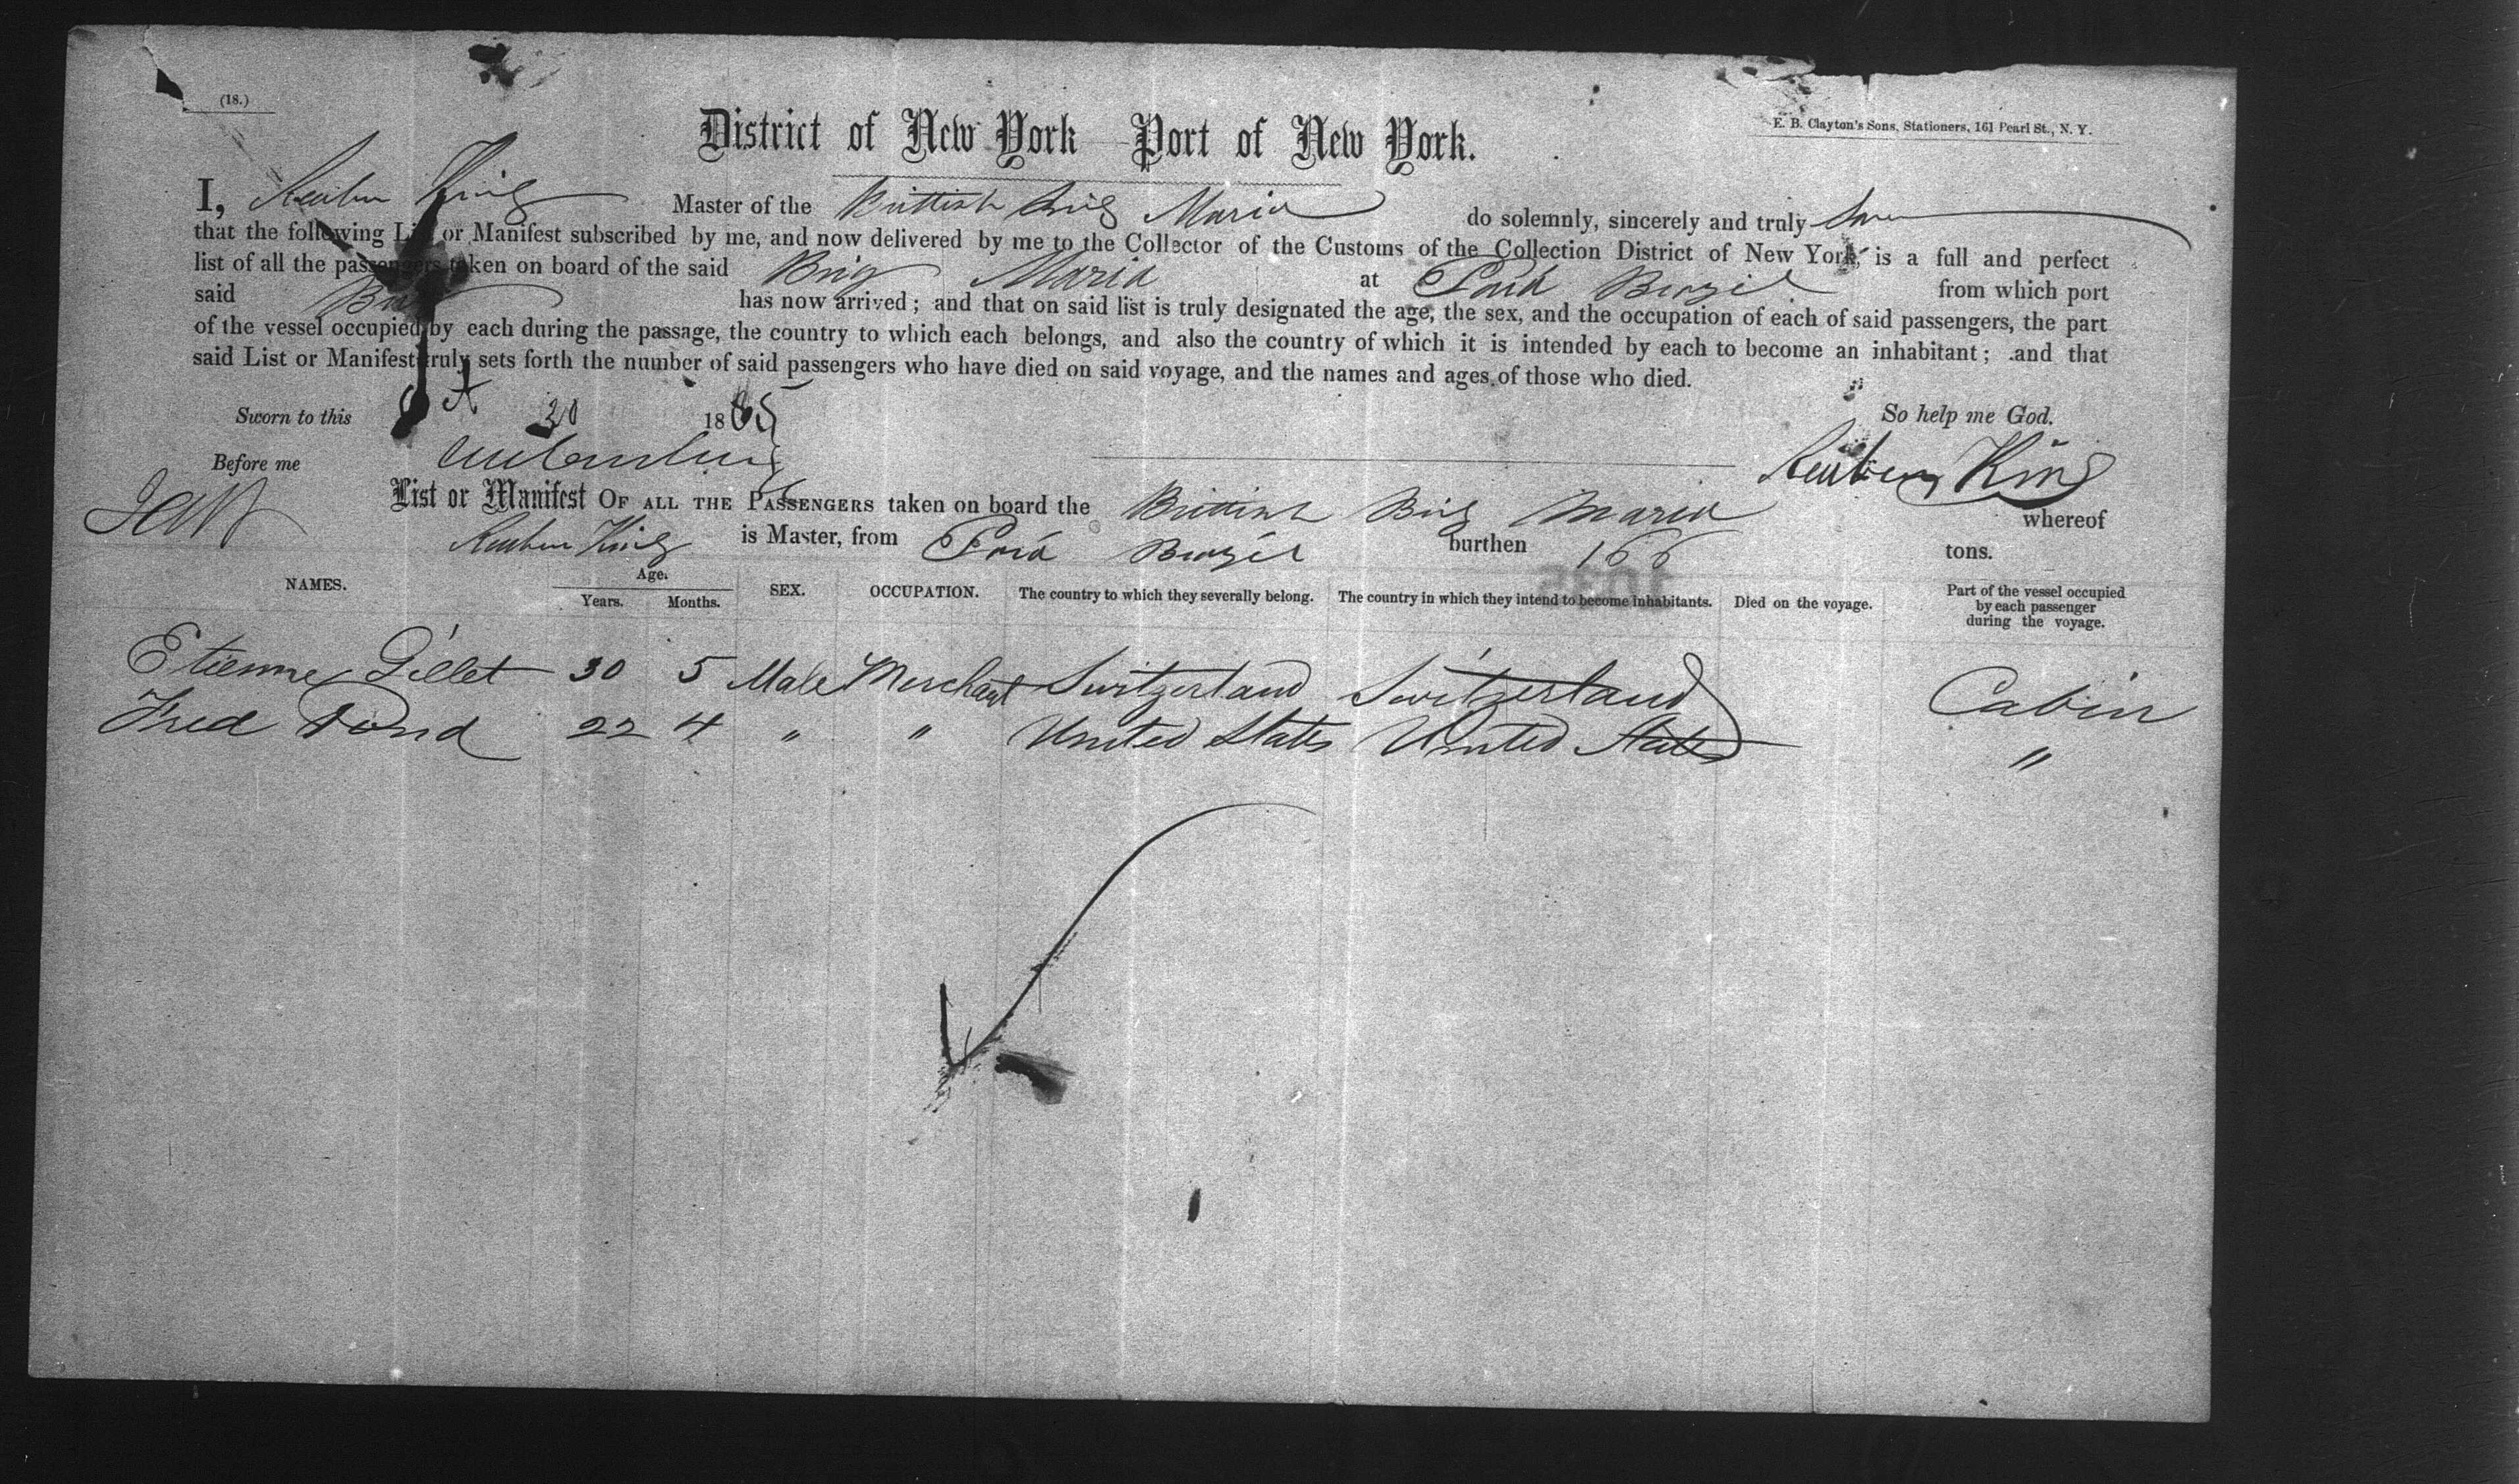 (18.)
District of New York Port of New York.
E. B. Clayton's Sons, Stationers, 161 Pearl St., N. Y.
I, Reuben King Master of the Brittish Brig Maria do solemnly, sincerely and truly
that the following List or Manifest subscribed by me, and now delivered by me to the Collector of the Customs of the Collection District of New York, is a full and perfect
list of all the passengers taken on board of the said Brig Maria at Pará Brazil from which port
said Brig has now arrived; and that on said list is truly designated the age, the sex, and the occupation of each of said passengers, the part
of the vessel occupied by each during the passage, the country to which each belongs, and also the country of which it is intended by each to become an inhabitant; and that
said List or Manifest truly sets forth the number of said passengers who have died on said voyage, and the names and ages of those who died.
Sworn to this 20 1865 So help me God.
Before me Reuben King
List or Manifest OF ALL THE PASSENGERS taken on board the Brittish Brig Maria whereof
Reuben King is Master, from Pará Brazil burthen 166 tons.
NAMES. Age. Years. Months. SEX. OCCUPATION. The country to which they severally belong. The country in which they intend to become inhabitants. Died on the voyage. Part of the vessel occupied by each passenger during the voyage.
Etienne Gillet 30 5 Male Merchant Switzerland Switzerland Cabin
Fred Pond 22 4 " " United States United States "